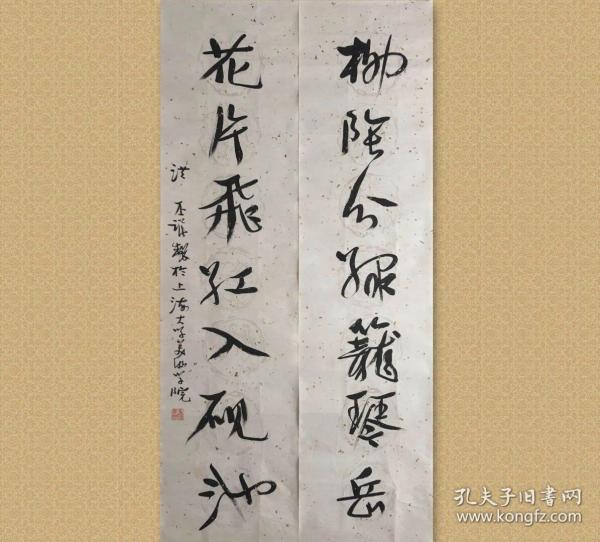 柳阴分绿笼琴岳
花片飞红入砚池
洪丕谟书于上海大学美术学院
孔夫子旧书网
www.kongfz.com